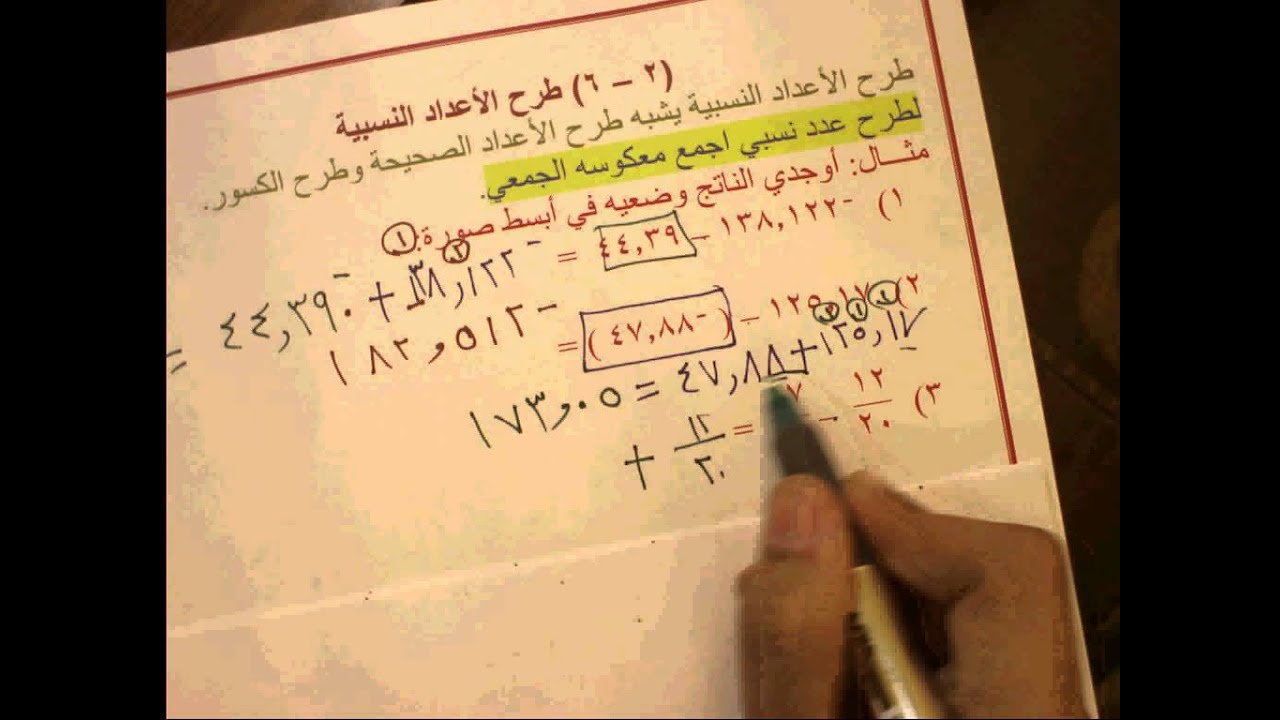 (٢ – ٦) طرح الأعداد النسبية
طرح الأعداد النسبية يشبه طرح الأعداد الصحيحة وطرح الكسور.
لطرح عدد نسبي اجمع معكوسه الجمعي.
مثال: أوجدي الناتج وضعيه في أبسط صورة:
١) ‎-١٣٨,١٢٢ – ٤٤,٣٩ =
‎-١٣٨,١٢٢ + ‎-٤٤,٣٩٠ =
‎-١٨٢,٥١٢
٢) ١٢٥,١٧ – (‎-٤٧,٨٨) =
١٢٥,١٧ + ٤٧,٨٨ = ١٧٣,٠٥
٣) ١٢/٢٠ – ٧ =
١٢/٢٠ +